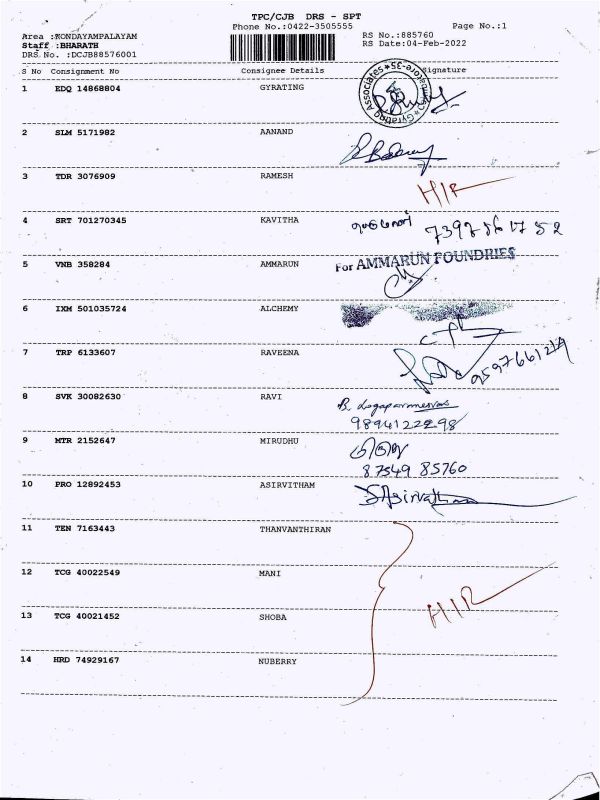 TPC/CJB DRS - SPT
Phone No.:0422-3505555
Page No.:1
Area :KONDAYAMPALAYAM
RS No.:885760
Staff :BHARATH
RS Date:04-Feb-2022
DRS No. :DCJB88576001
S No Consignment No Consignee Details Signature
1 EDQ 14868804 GYRATING
Gyrating Associates * Coimbatore-35 *
2 SLM 5171982 AANAND
3 TDR 3076909 RAMESH
H/R
4 SRT 701270345 KAVITHA
5 VNB 358284 AMMARUN
For AMMARUN FOUNDRIES
6 IXM 501035724 ALCHEMY
7 TRP 6133607 RAVEENA
9597661219
8 SVK 30082630 RAVI
9894122298
9 MTR 2152647 MIRUDHU
87549 85760
10 PRO 12892453 ASIRVITHAM
SAsirvatham
11 TEN 7163443 THANVANTHIRAN
12 TCG 40022549 MANI
H/R
13 TCG 40021452 SHOBA
14 HRD 74929167 NUBERRY